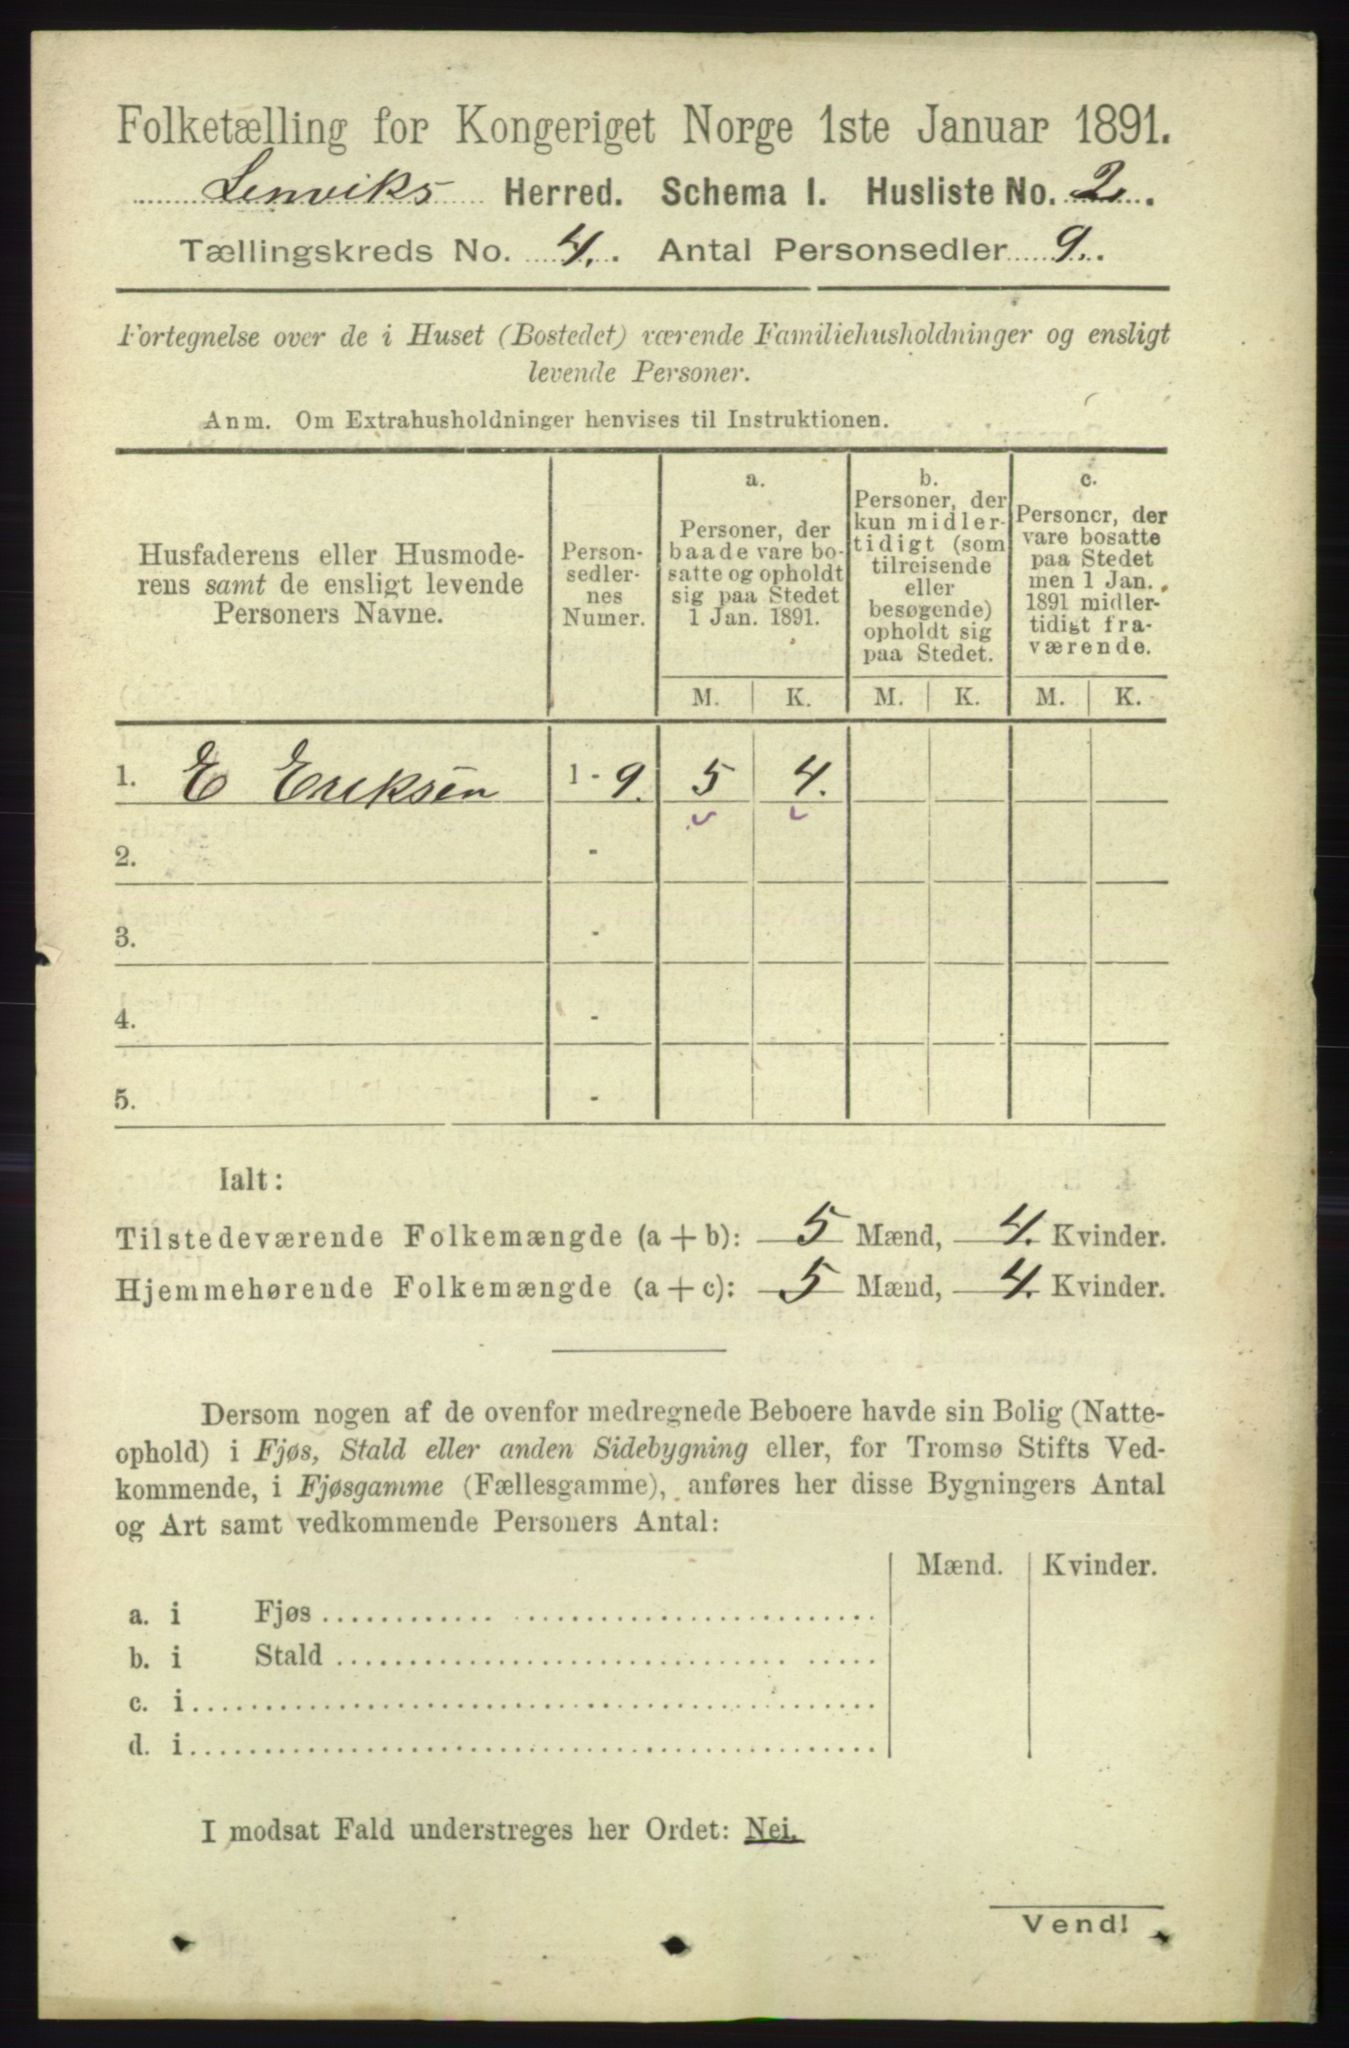 Folketælling for Kongeriget Norge 1ste Januar 1891.
Lenviks Herred. Schema I. Husliste No. 2.
Tællingskreds No. 4. Antal Personsedler 9.
Fortegnelse over de i Huset (Bostedet) værende Familiehusholdninger og ensligt
levende Personer.
Anm. Om Extrahusholdninger henvises til Instruktionen.
Husfaderens eller Husmode-
rens samt de ensligt levende
Personers Navne.
Person-
sedler-
nes
Numer.
a.
Personer, der
baade vare bo-
satte og opholdt
sig paa Stedet
1 Jan. 1891.
b.
Personer, der
kun midler-
tidigt (som
tilreisende
eller
besøgende)
opholdt sig
paa Stedet.
c.
Personer, der
vare bosatte
paa Stedet
men 1 Jan.
1891 midler-
tidigt fra-
værende.
M. K. M. K. M. K.
1. E Eriksen 1 - 9. 5 4.
2. -
3. -
4. -
5. -
Ialt:
Tilstedeværende Folkemængde (a + b): 5 Mænd, 4. Kvinder.
Hjemmehørende Folkemængde (a + c): 5 Mænd, 4. Kvinder.
Dersom nogen af de ovenfor medregnede Beboere havde sin Bolig (Natte-
ophold) i Fjøs, Stald eller anden Sidebygning eller, for Tromsø Stifts Ved-
kommende, i Fjøsgamme (Fællesgamme), anføres her disse Bygningers Antal
og Art samt vedkommende Personers Antal:
Mænd. Kvinder.
a. i Fjøs
b. i Stald
c. i
d. i
I modsat Fald understreges her Ordet: Nei.
Vend!